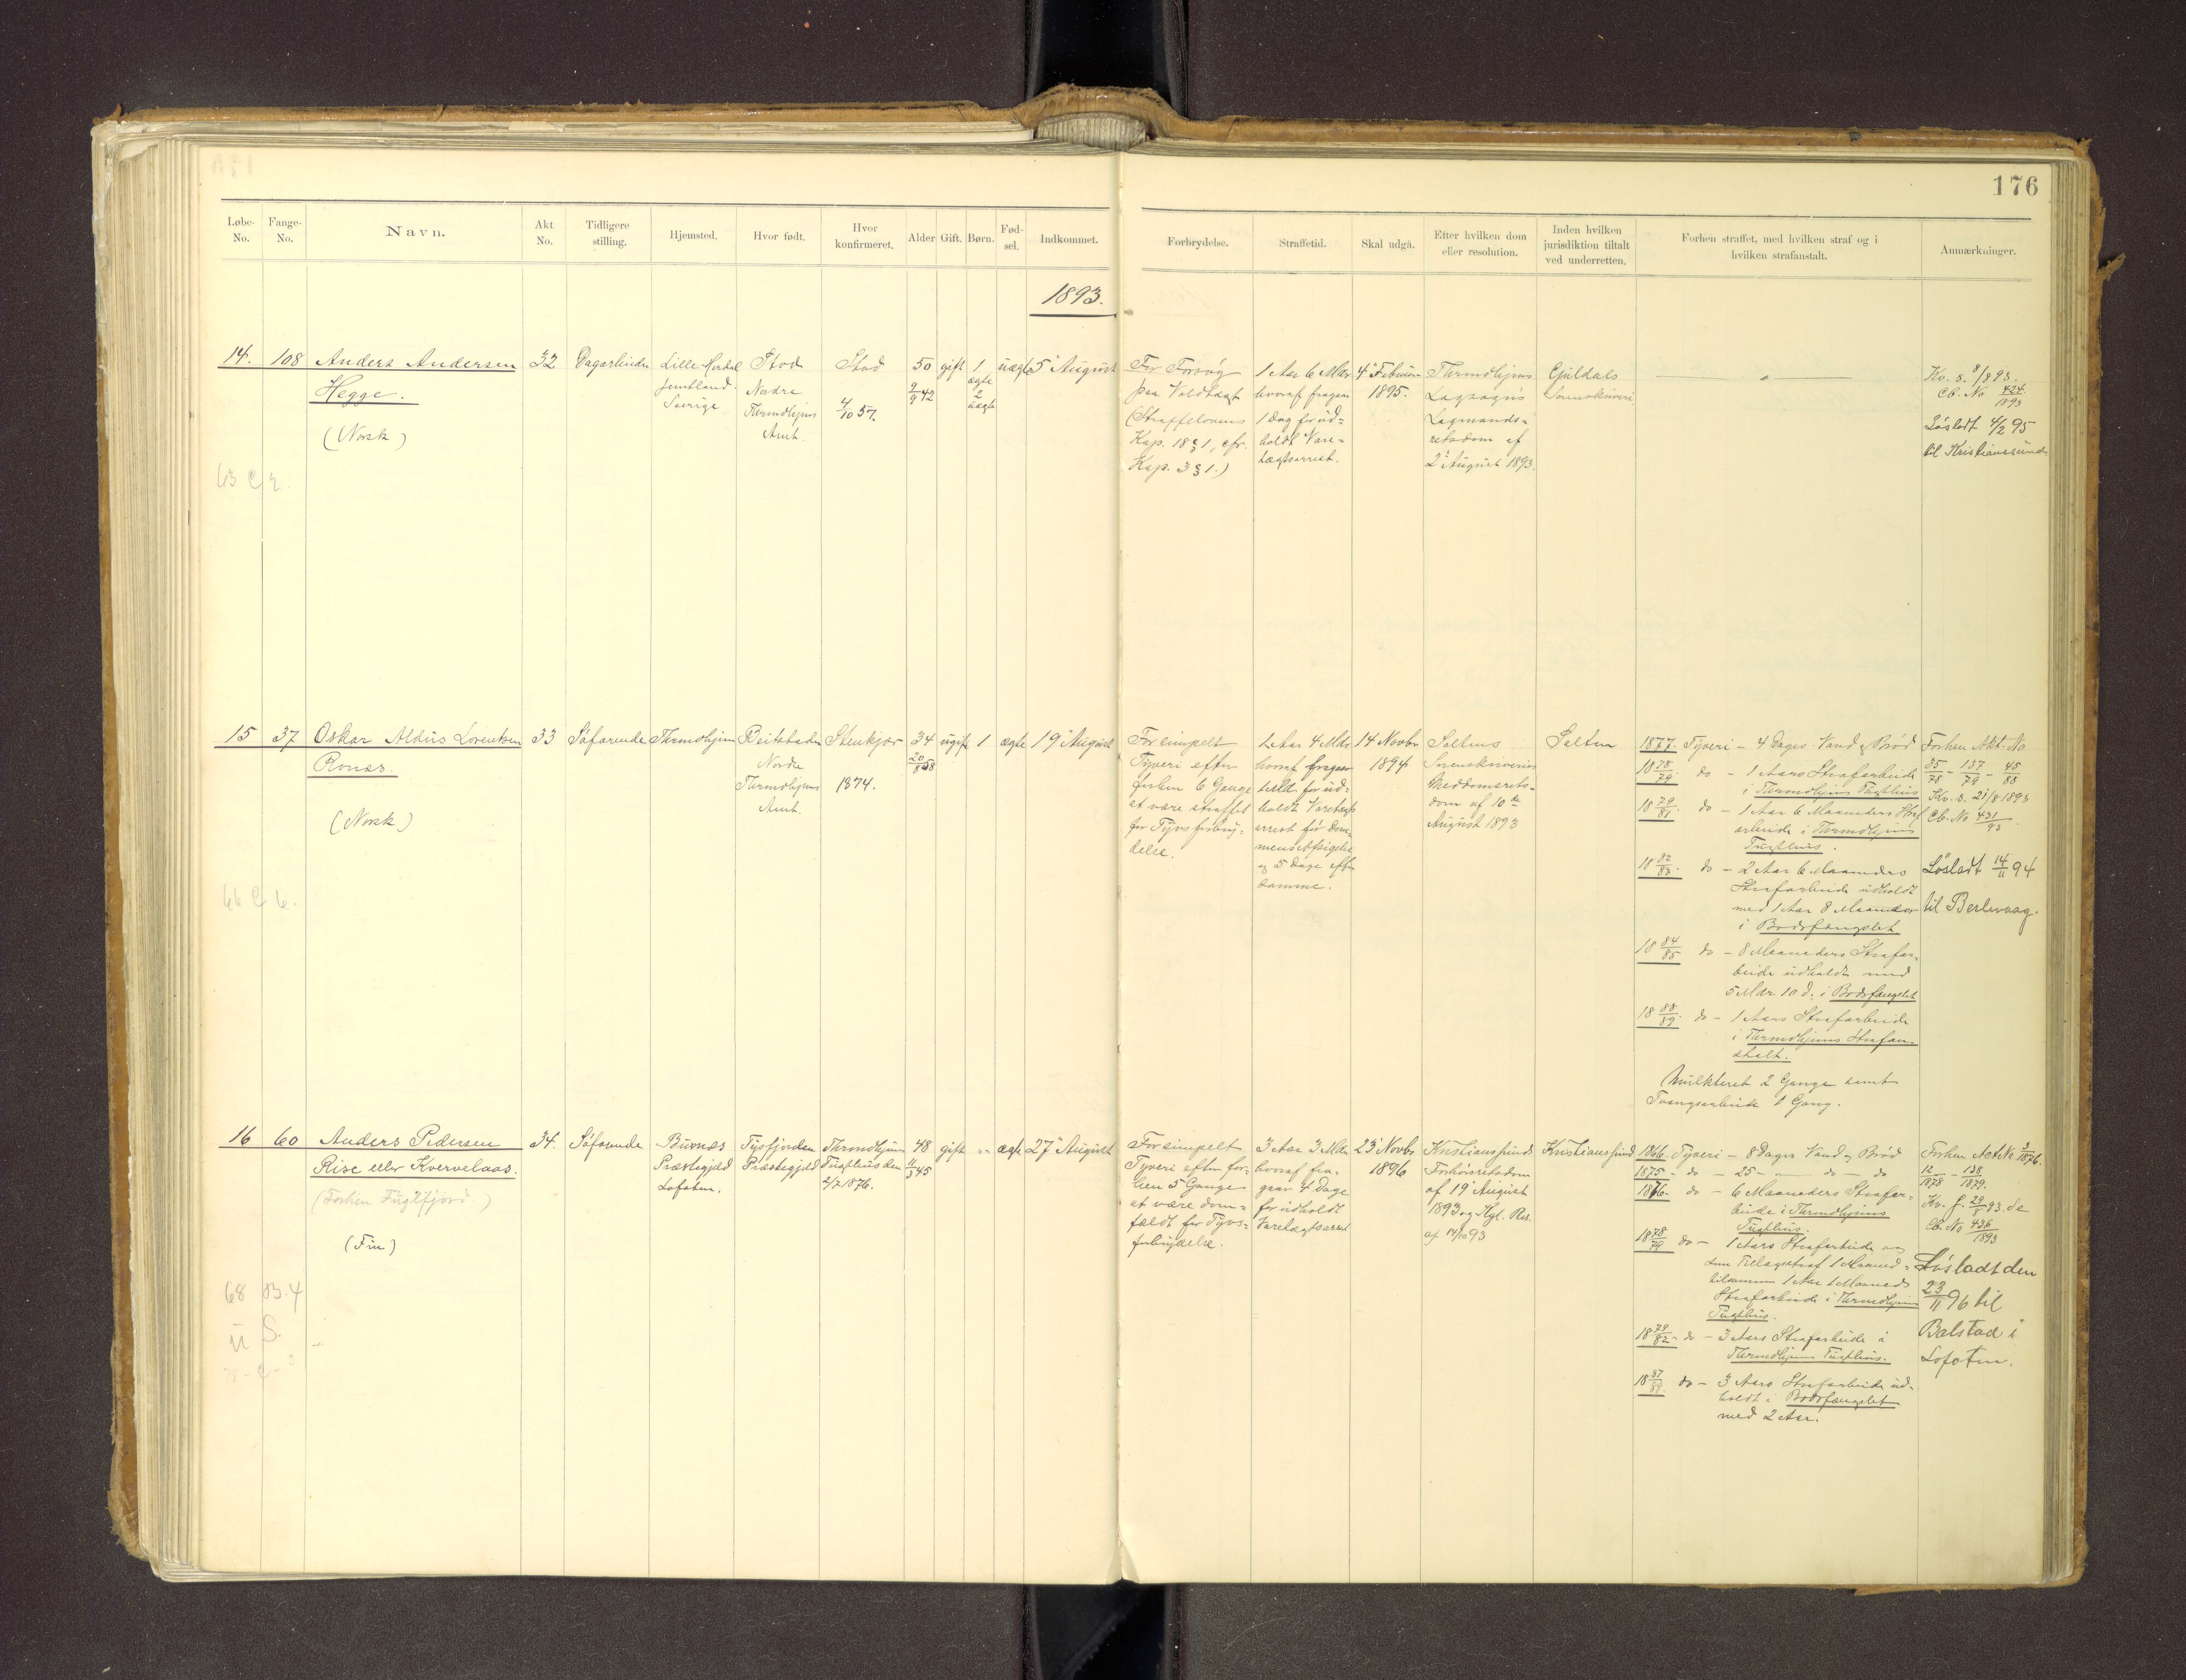 176
Løbe-No.
Fange-No.
Navn.
Akt No.
Tidligere stilling.
Hjemsted.
Hvor født.
Hvor konfirmeret.
Alder
Gift.
Børn.
Fødsel.
Indkommet.
Forbrydelse.
Straffetid.
Skal udgå.
Efter hvilken dom eller resolution.
Inden hvilken jurisdiktion tiltalt ved underretten.
Forhen straffet, med hvilken straf og i hvilken strafanstalt.
Anmærkninger.
1893.
14.
108
Anders Andersen
Hegge.
(Norsk)
32
Dagarbeider
Lille Herdal
Jemtland.
Sverige
Stod
Nordre
Throndhjems
Amt.
Stod
4/10 57.
50
9/9 42
gift
1
ægte
2
uægte
uægte
5 August
For Forsøg
paa Voldtægt
(Straffelovens
Kap. 18 § 1, cfr.
Kap. 3 § 1.)
1 Aar 6 Mdr
hvoraf fragaar
1 Dag for ud-
holdt Vare-
tægtsarrest.
4 Februar
1895.
Throndhjems
Lagsogns
Lagmands-
retsdom af
2 August 1893.
Guldals
Sorenskriveri.
Kv. s. 8/8 93.
Cb. No 424/1893
Løsladt 4/2 95
til Kristianssund
63 C 2.
15
37
Oskar Aldus Lorentsen
Ronæs.
(Norsk)
33
Søfarende
Throndhjem
Beitstaden
Nordre
Throndhjems
Amt.
Stenkjær
1874.
34
20/8 58
ugift
1
ægte
19 August
For simpelt
Tyveri efter
forhen 6 Gange
at være straffet
for Tyvsforbry-
delse.
1 Aar 4 Mdr
hvoraf fragaar
holdt Varetægts
arrest før Dom-
mens Afsigelse
og 5 Dage efter
samme.
14 Novbr
1894
Saltens
Sorenskriveries
Meddomsrets-
dom af 10de
August 1893
Salten
1877. Tyveri – 4 Dages Vand & Brød
18 78/79. do – 1 Aars Strafarbeide
i Throndhjems Tugthus
18 79/81. do – 1 Aar 6 Maaneders Straf
arbeide i Throndhjems
Tugthus.
18 82/83. do – 2 Aar 6 Maaneders
Strafarbeide udholdt
med 1 Aar 8 Maaneder
i Bodsfængslet
18 84/85 do – 8 Maaneders Strafar-
beide udholdt med
5 Mdr 10 d. i Bodsfængslet
18 88/89. do – 1 Aars Strafarbeide
i Throndhjems Strafan-
stalt.
Mulkteret 2 Gange samt
Tvangsarbeide 1 Gang.
Forhen Akt. No
35/78 – 137/79 – 45/88
Kv. s. 21/8 1893
Cb. No 431/93.
Løsladt 14/11 94
til Berlevaag.
66 C 6.
16
60
Anders Pedersen
Rise eller Kvervelaas.
(Forhen Fuglfjord.)
(Fin)
34.
Søfarende
Buxnæs
Præstegjeld
Lofoten.
Tysfjorden
Præstegjeld
Throndhjems
Tugthus den
2/7 1876.
48
11/3 45
gift
"
ægte
27 August
For simpelt
Tyveri efter for-
hen 5 Gange
at være dom-
fældt for Tyvs-
forbrydelse.
3 Aar 3 Mdr
hvoraf fra-
gaar 4 Dage
for udholdt
Varetægtsarrest
23 Novbr
1896
Kristianssunds
Forhørsretsdom
af 19 August
1893 og Kgl. Res.
af 14/10 93
Kristianssund
1866. Tyveri – 8 Dages Vand & Brød
1875 – do – 25 – " – do – do
1876. do – 6 Maaneders Strafar-
beide i Throndhjems
Tugthus.
18 78/79 do – 1 Aars Strafarbeide og
som Tillægsstraf 1 Maaned =
tilsammen 1 Aar 1 Maaneds
Strafarbeide i Throndhjems
Tugthus.
18 79/82 – do – 3 Aars Strafarbeide i
Throndhjems Tugthus.
18 87/89. do – 3 Aars Strafarbeide ud-
holdt i Bodsfængslet
med 2 Aar.
Forhen Akt No 3/1876.
12/1878 – 138/1879.
Kv. f. 29/8 93. de
Cb. No 436/1893
Løsladt den
23/11 96 til
Balstad i
Lofoten.
68 B. 4
u S.